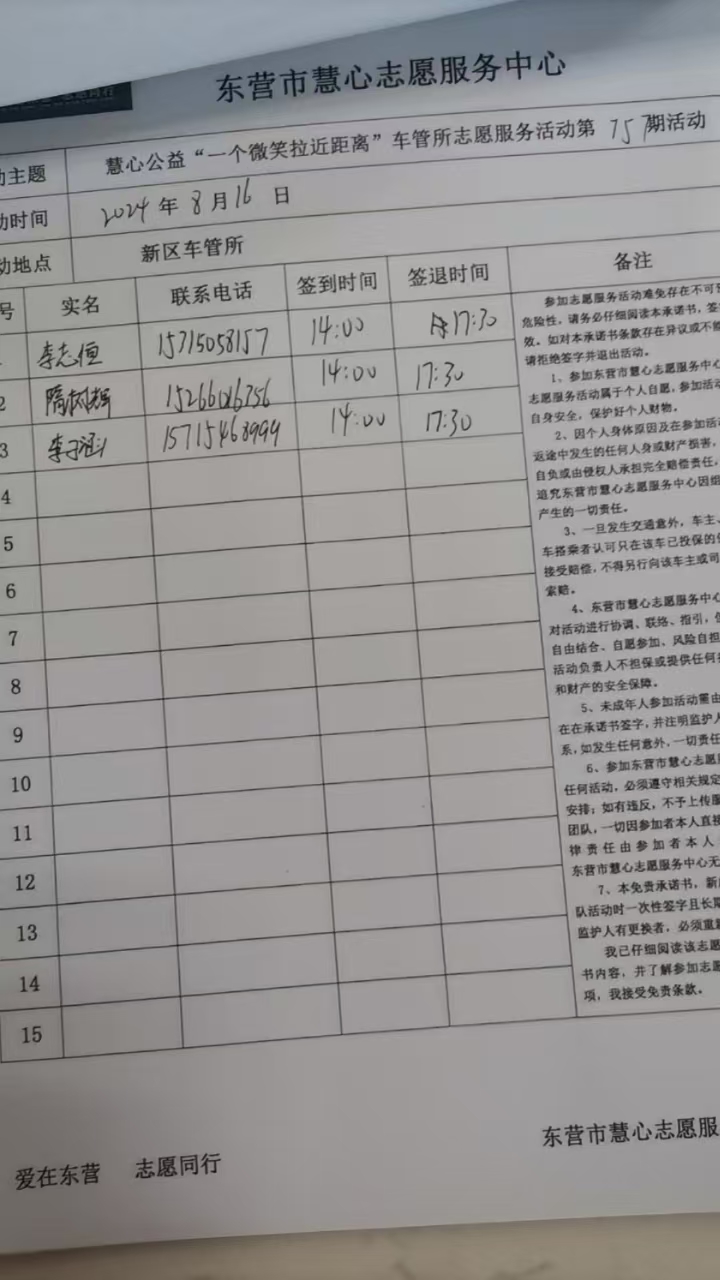 志愿同行
东营市慧心志愿服务中心
动主题 慧心公益“一个微笑拉近距离”车管所志愿服务活动第 757 期活动
动时间 2024 年 8 月 16 日
动地点 新区车管所
号 实名 联系电话 签到时间 签退时间 备注
1 李志恒 15715058157 14:00 17:30
2 隋树辉 15266016356 14:00 17:30
3 李子涵 15715468999 14:00 17:30
4
5
6
7
8
9
10
11
12
13
14
15
参加志愿服务活动难免存在不可预
危险性，请务必仔细阅读本承诺书，签
效。如对本承诺书条款存在异议或不能
请拒绝签字并退出活动。
1、参加东营市慧心志愿服务中心
志愿服务活动属于个人自愿，参加活动
自身安全，保护好个人财物。
2、因个人身体原因及在参加活动
返途中发生的任何人身或财产损害，
自负或由侵权人承担完全赔偿责任，
追究东营市慧心志愿服务中心因组
产生的一切责任。
3、一旦发生交通意外，车主、
车搭乘者认可只在该车已投保的
接受赔偿，不得另行向该车主或司
索赔。
4、东营市慧心志愿服务中心
对活动进行协调、联络、指引，
自由结合、自愿参加、风险自担
活动负责人不担保或提供任何
和财产的安全保障。
5、未成年人参加活动需由
在在承诺书签字，并注明监护人
系，如发生任何意外，一切责任
6、参加东营市慧心志愿服
任何活动，必须遵守相关规定
安排；如有违反，不予上传服
团队，一切因参加者本人直接
律责任由参加者本人
东营市慧心志愿服务中心无
7、本免责承诺书，新
队活动时一次性签字且长期
监护人有更换者，必须重新
我已仔细阅读该志愿
书内容，并了解参加志愿
项，我接受免责条款。
东营市慧心志愿服
爱在东营 志愿同行